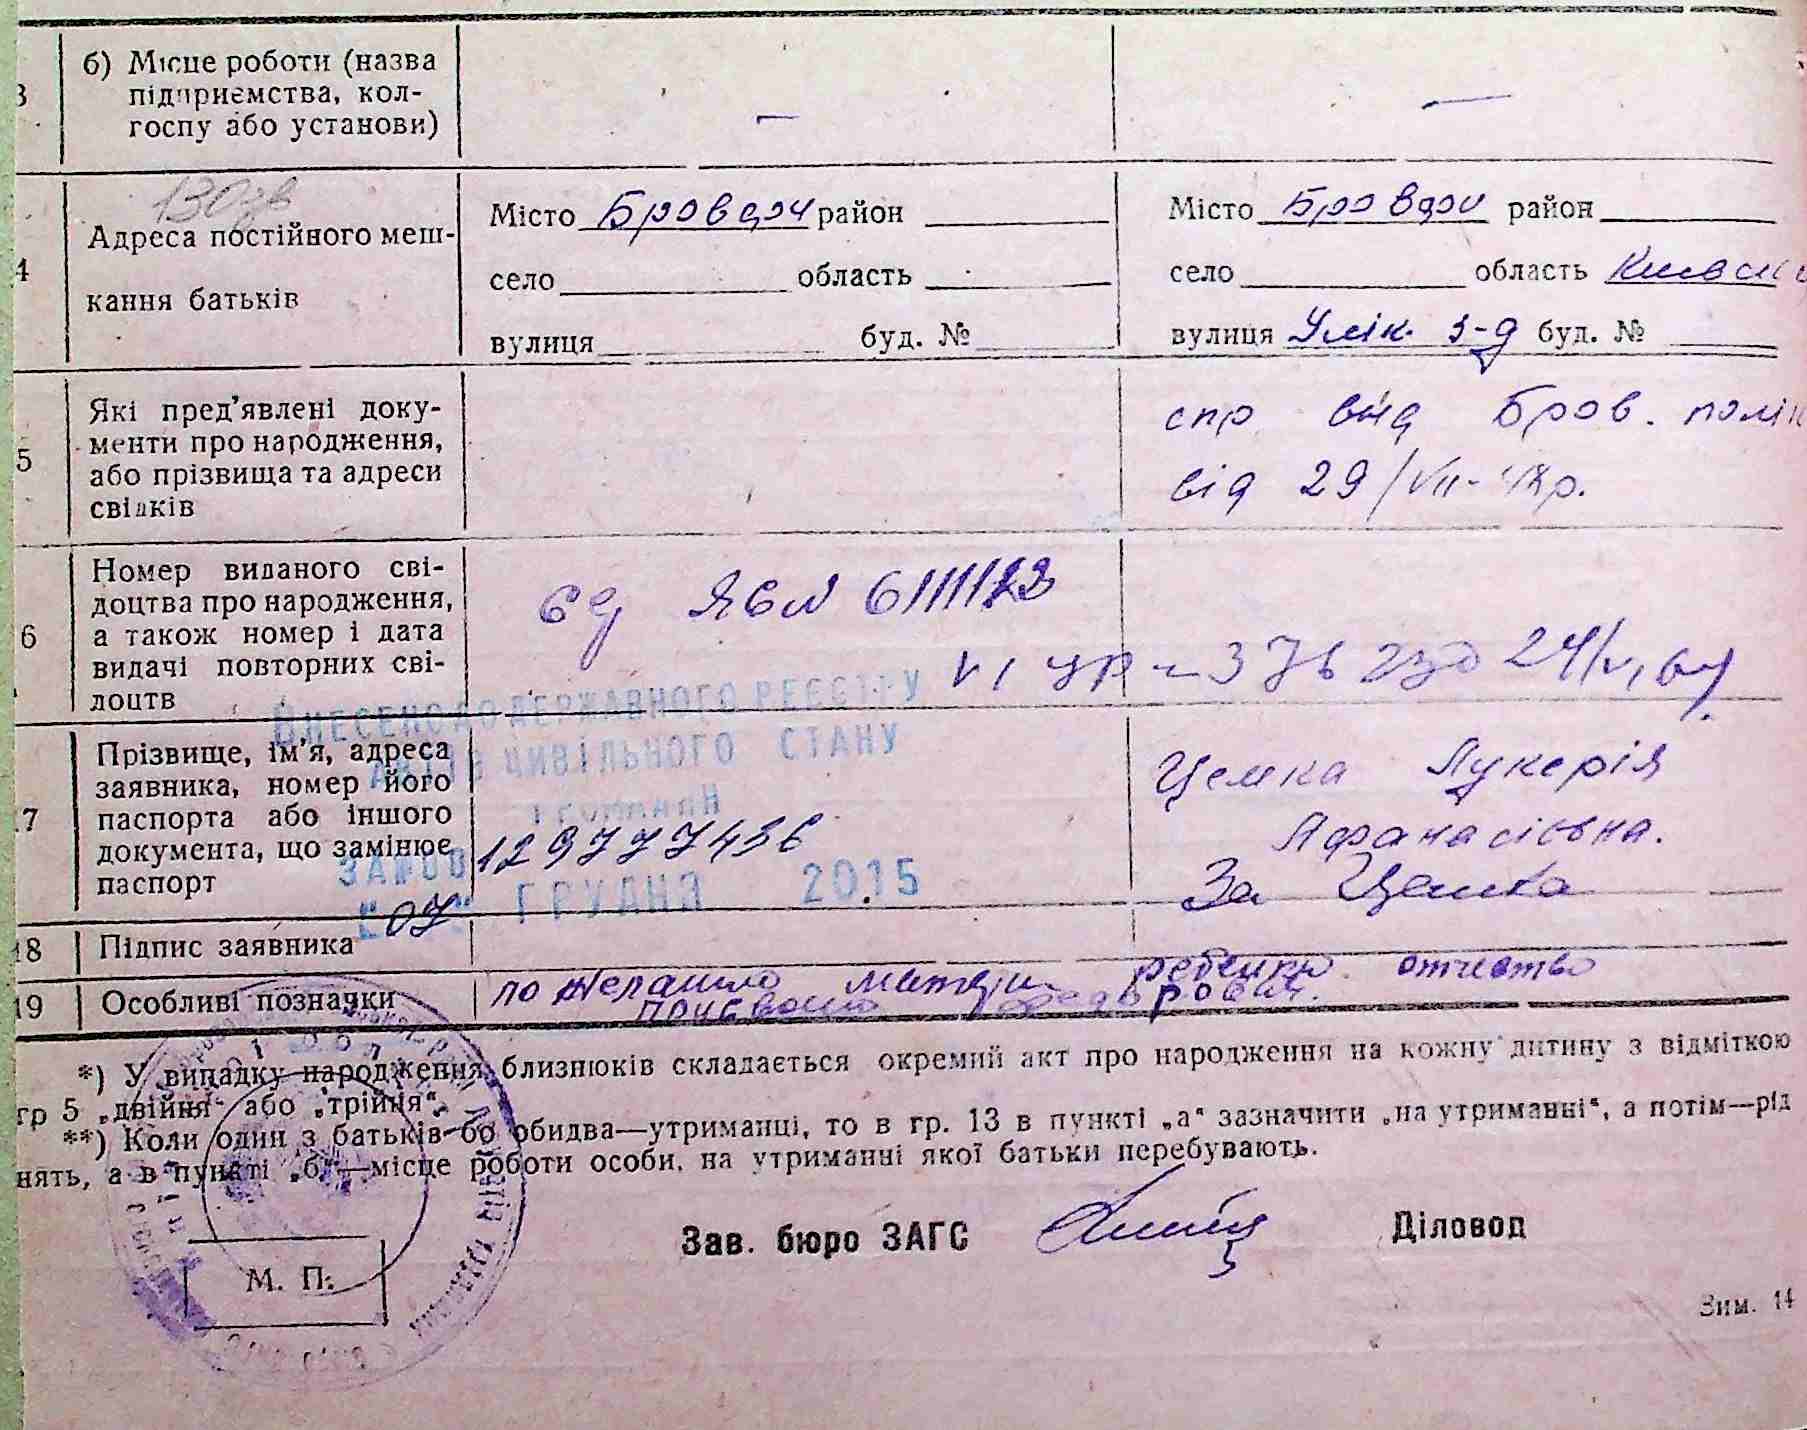 б) Місце роботи (назва
підприємства, кол-
госпу або установи)
— —
4 Адреса постійного меш-
кання батьків
Місто Бровари район
село область
вулиця буд. №
Місто Бровари район
село область Київськ
вулиця буд. №
5 Які пред'явлені доку-
менти про народження,
або прізвища та адреси
свідків
спр від Бров. полік
від 29/VII-48р.
6 Номер виданого сві-
доцтва про народження,
а також номер і дата
видачі повторних сві-
доцтв
ВНЕСЕНО ДО ДЕРЖАВНОГО РЕЄСТРУ
АКТІВ ЦИВІЛЬНОГО СТАНУ
ГРОМАДЯН
7 Прізвище, ім'я, адреса
заявника, номер його
паспорта або іншого
документа, що замінює
паспорт
Цемка Лукерія
Афанасієвна.
За Цемка
129777436
"07" ГРУДНЯ 2015
18 Підпис заявника
19 Особливі позначки
по желанию матери ребенку отчество
присвоено Федорович.
*) У випадку народження близнюків складається окремий акт про народження на кожну дитину з відміткою
гр 5 „двійня" або „трійня".
**) Коли один з батьків бо обидва—утриманці, то в гр. 13 в пункті „а" зазначити „на утриманні", а потім—рід
нять, а в пункті „б"—місце роботи особи, на утриманні якої батьки перебувають.
Зав. бюро ЗАГС Діловод
М. П.
Зим. 14